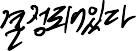 결정되어있다